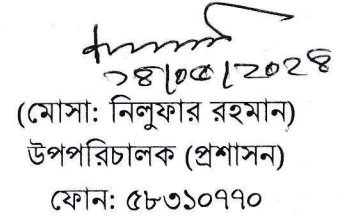 ১৪/০৫/2০2৪
(মোসা: নিলুফার রহমান)
উপপরিচালক (প্রশাসন)
ফোন: ৫৮৩১০৭৭০